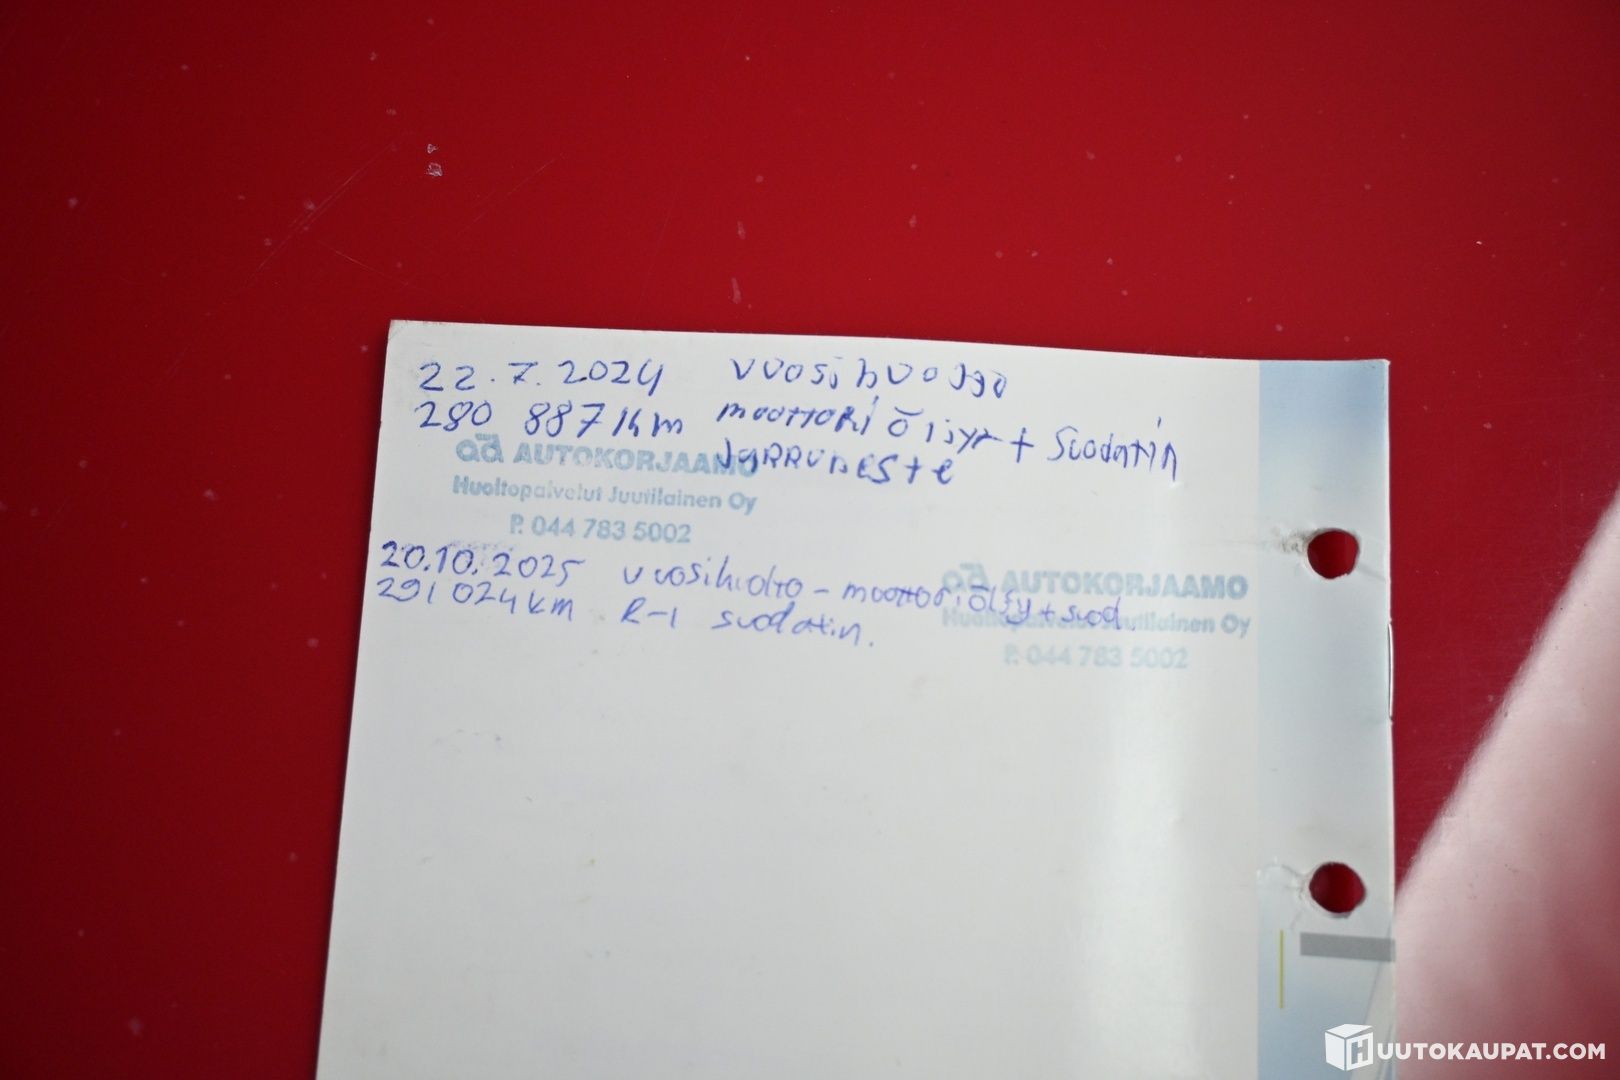 22.7.2024 vuosihuolto
280 887 km moottoriöljyt + suodatin
Jarruneste
ad AUTOKORJAAMO
Huoltopalvelut Juutilainen Oy
P. 044 783 5002
20.10.2025 vuosihuolto - moottoriöljy + suod.
291 024 km R-I suodatin.
ad AUTOKORJAAMO
Huoltopalvelut Juutilainen Oy
P. 044 783 5002
HUUTOKAUPAT.COM